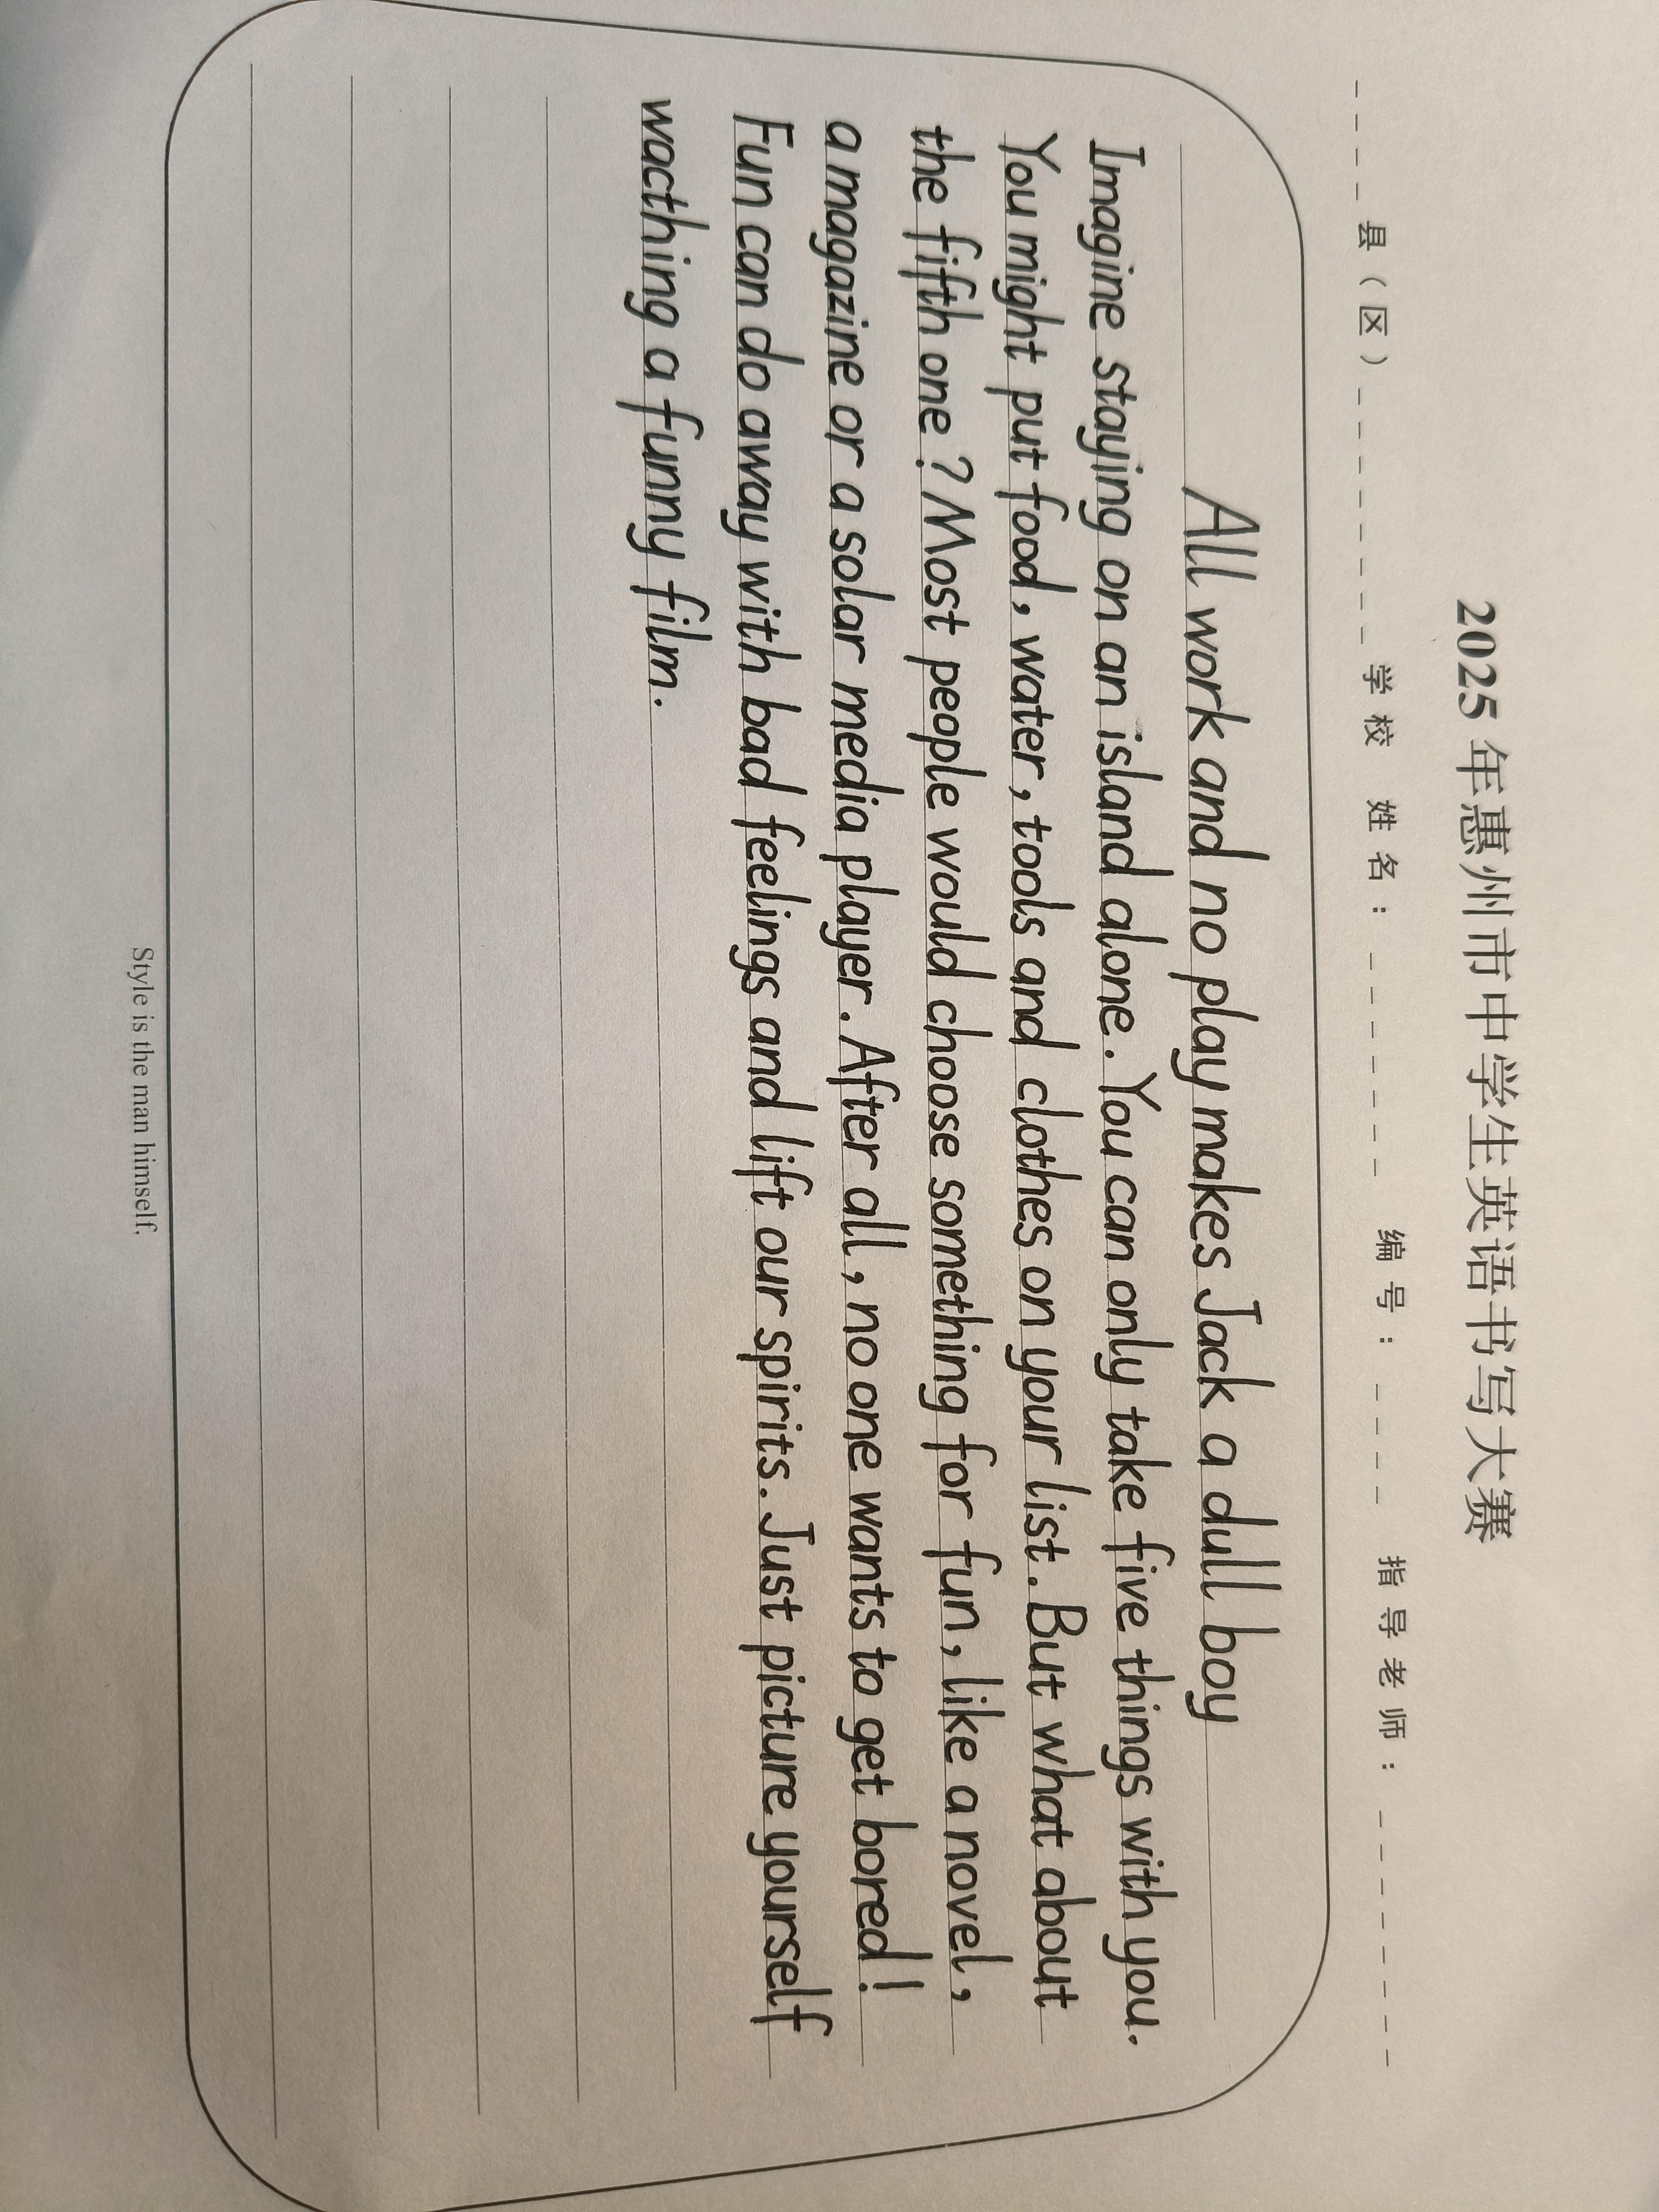 2025年惠州市中学生英语书写大赛
____县（区）_________学校 姓名：_______ 编号：____ 指导老师：________
All work and no play makes Jack a dull boy
Imagine staying on an island alone. You can only take five things with you.
You might put food, water, tools and clothes on your list. But what about
the fifth one? Most people would choose something for fun, like a novel,
a magazine or a solar media player. After all, no one wants to get bored!
Fun can do away with bad feelings and lift our spirits. Just picture yourself
wacthing a funny film.
Style is the man himself.